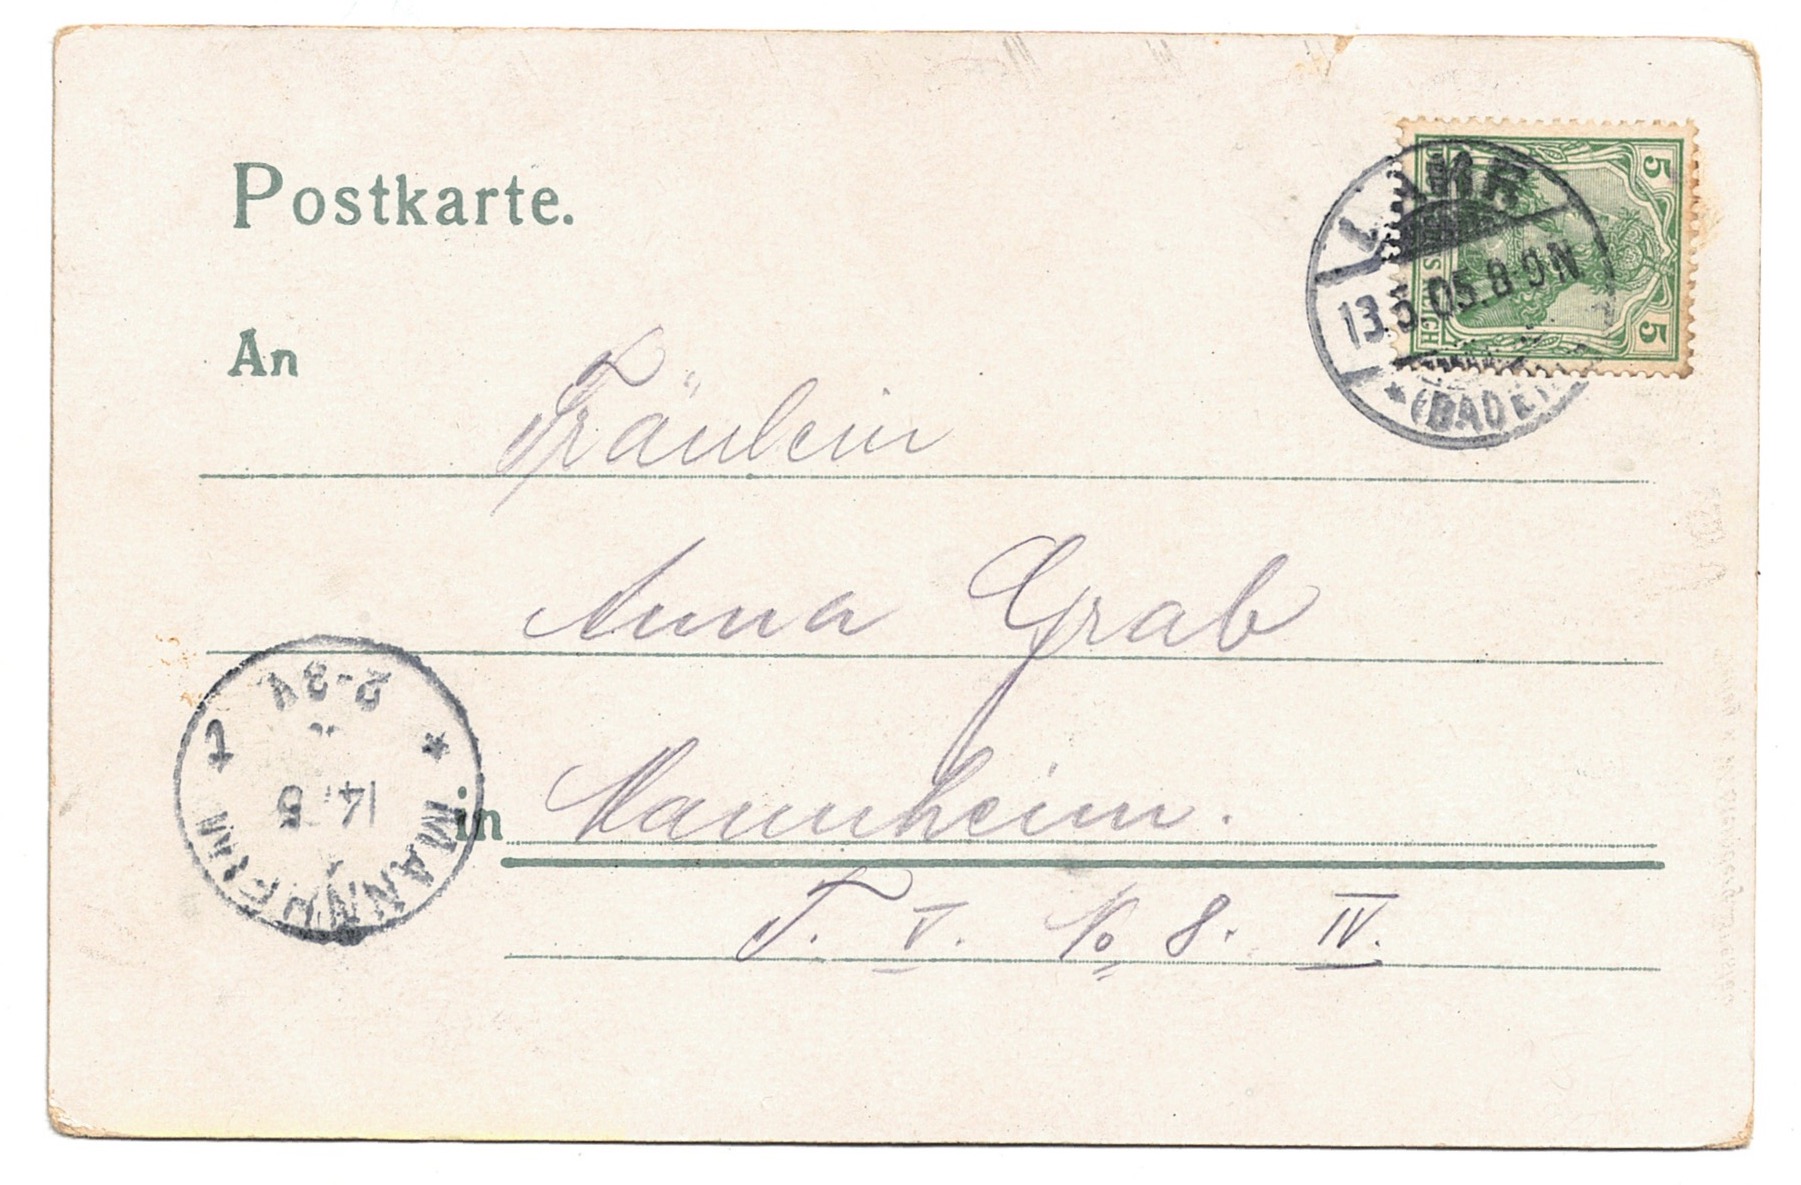 Postkarte.
5 5
LAHR
13.5.05.8-9N
* (BADEN)
An
Fräulein
Anna Grab
2-3V
14 5
* MANNHEIM
in Mannheim.
T. No 8. IV.